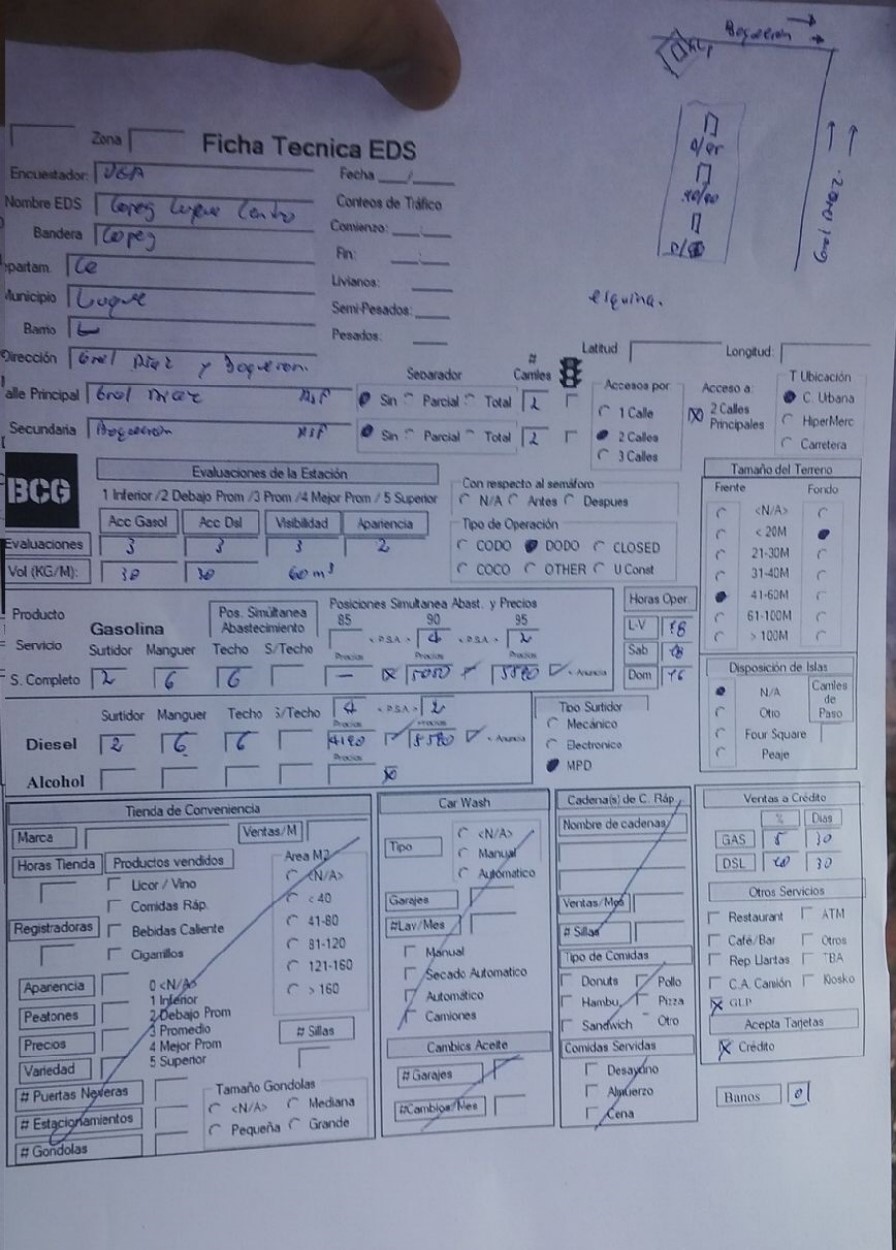 Boqueron
GLP
Gral Diaz.
esquina.
Zona
Ficha Tecnica EDS
Encuestador:
Fecha __/__
Nombre EDS Copeg Luque Centro
Conteos de Tráfico
Bandera Copeg
Comienzo: __:__
Fin: __:__
partam. Ce
Livianos:
Municipio Luque
Semi-Pesados:
Barrio
Pesados:
Dirección Gral Diaz y Boqueron.
Latitud Longitud:
Separador # Carriles
alle Principal Gral Diaz Asf Sin Parcial Total 2
Secundaria Boqueron Asf Sin Parcial Total 2
Accesos por
1 Calle
2 Calles
3 Calles
Acceso a:
2 Calles Principales
T Ubicación
C. Urbana
HiperMerc
Carretera
BCG
Evaluaciones de la Estación
1 Inferior /2 Debajo Prom /3 Prom /4 Mejor Prom / 5 Superior
Acc Gasol Acc Dsl Visibilidad Apariencia
Evaluaciones 3 3 3 2
Vol (KG/M): 30 30 60 m³
Con respecto al semáforo
N/A Antes Despues
Tipo de Operación
CODO DODO CLOSED
COCO OTHER U Const
Tamaño del Terreno
Frente Fondo
<N/A>
< 20M
21-30M
31-40M
41-60M
61-100M
> 100M
Producto
Servicio
Gasolina
Pos. Simúltanea Abastecimiento
Posiciones Simultanea Abast. y Precios
85 90 95
< P.S.A > 4 < P.S.A > 2
Surtidor Manguer Techo S/Techo Precios Precios Precios
S. Completo 2 6 6 — 5050 5580 < Anuncia
Horas Oper.
L-V 18
Sab 18
Dom 16
Disposición de Islas
N/A
Otro
Four Square
Peaje
Carriles de Paso
4 < P.S.A > 2
Surtidor Manguer Techo S/Techo Precios Precios
Diesel 2 6 6 4190 < Anuncia
Precios
Alcohol
Tipo Surtidor
Mecánico
Electronico
MPD
Tienda de Conveniencia
Marca Ventas/M
Horas Tienda Productos vendidos
Licor / Vino
Comidas Ráp.
Bebidas Caliente
Cigarrillos
Registradoras
Area M2
<N/A>
< 40
41-80
81-120
121-160
> 160
Apariencia
Peatones
Precios
Variedad
0 <N/A>
1 Inferior
2 Debajo Prom
3 Promedio
4 Mejor Prom
5 Superior
# Sillas
# Puertas Neveras
# Estacionamientos
# Gondolas
Tamaño Gondolas
<N/A> Mediana
Pequeña Grande
Car Wash
Tipo
<N/A>
Manual
Automatico
Garajes
#Lav/Mes
Manual
Secado Automatico
Automático
Camiones
Cambios Aceite
# Garajes
#Cambios/Mes
Cadena(s) de C. Ráp.
Nombre de cadenas
Ventas/Mes
# Sillas
Tipo de Comidas
Donuts Pollo
Hambu. Pizza
Sandwich Otro
Comidas Servidas
Desayuno
Almuerzo
Cena
Ventas a Crédito
% Dias
GAS 5 30
DSL 30
Otros Servicios
Restaurant ATM
Café/Bar Otros
Rep Llantas TBA
C.A. Camión Kiosko
GLP
Acepta Tarjetas
Crédito
Banos 0